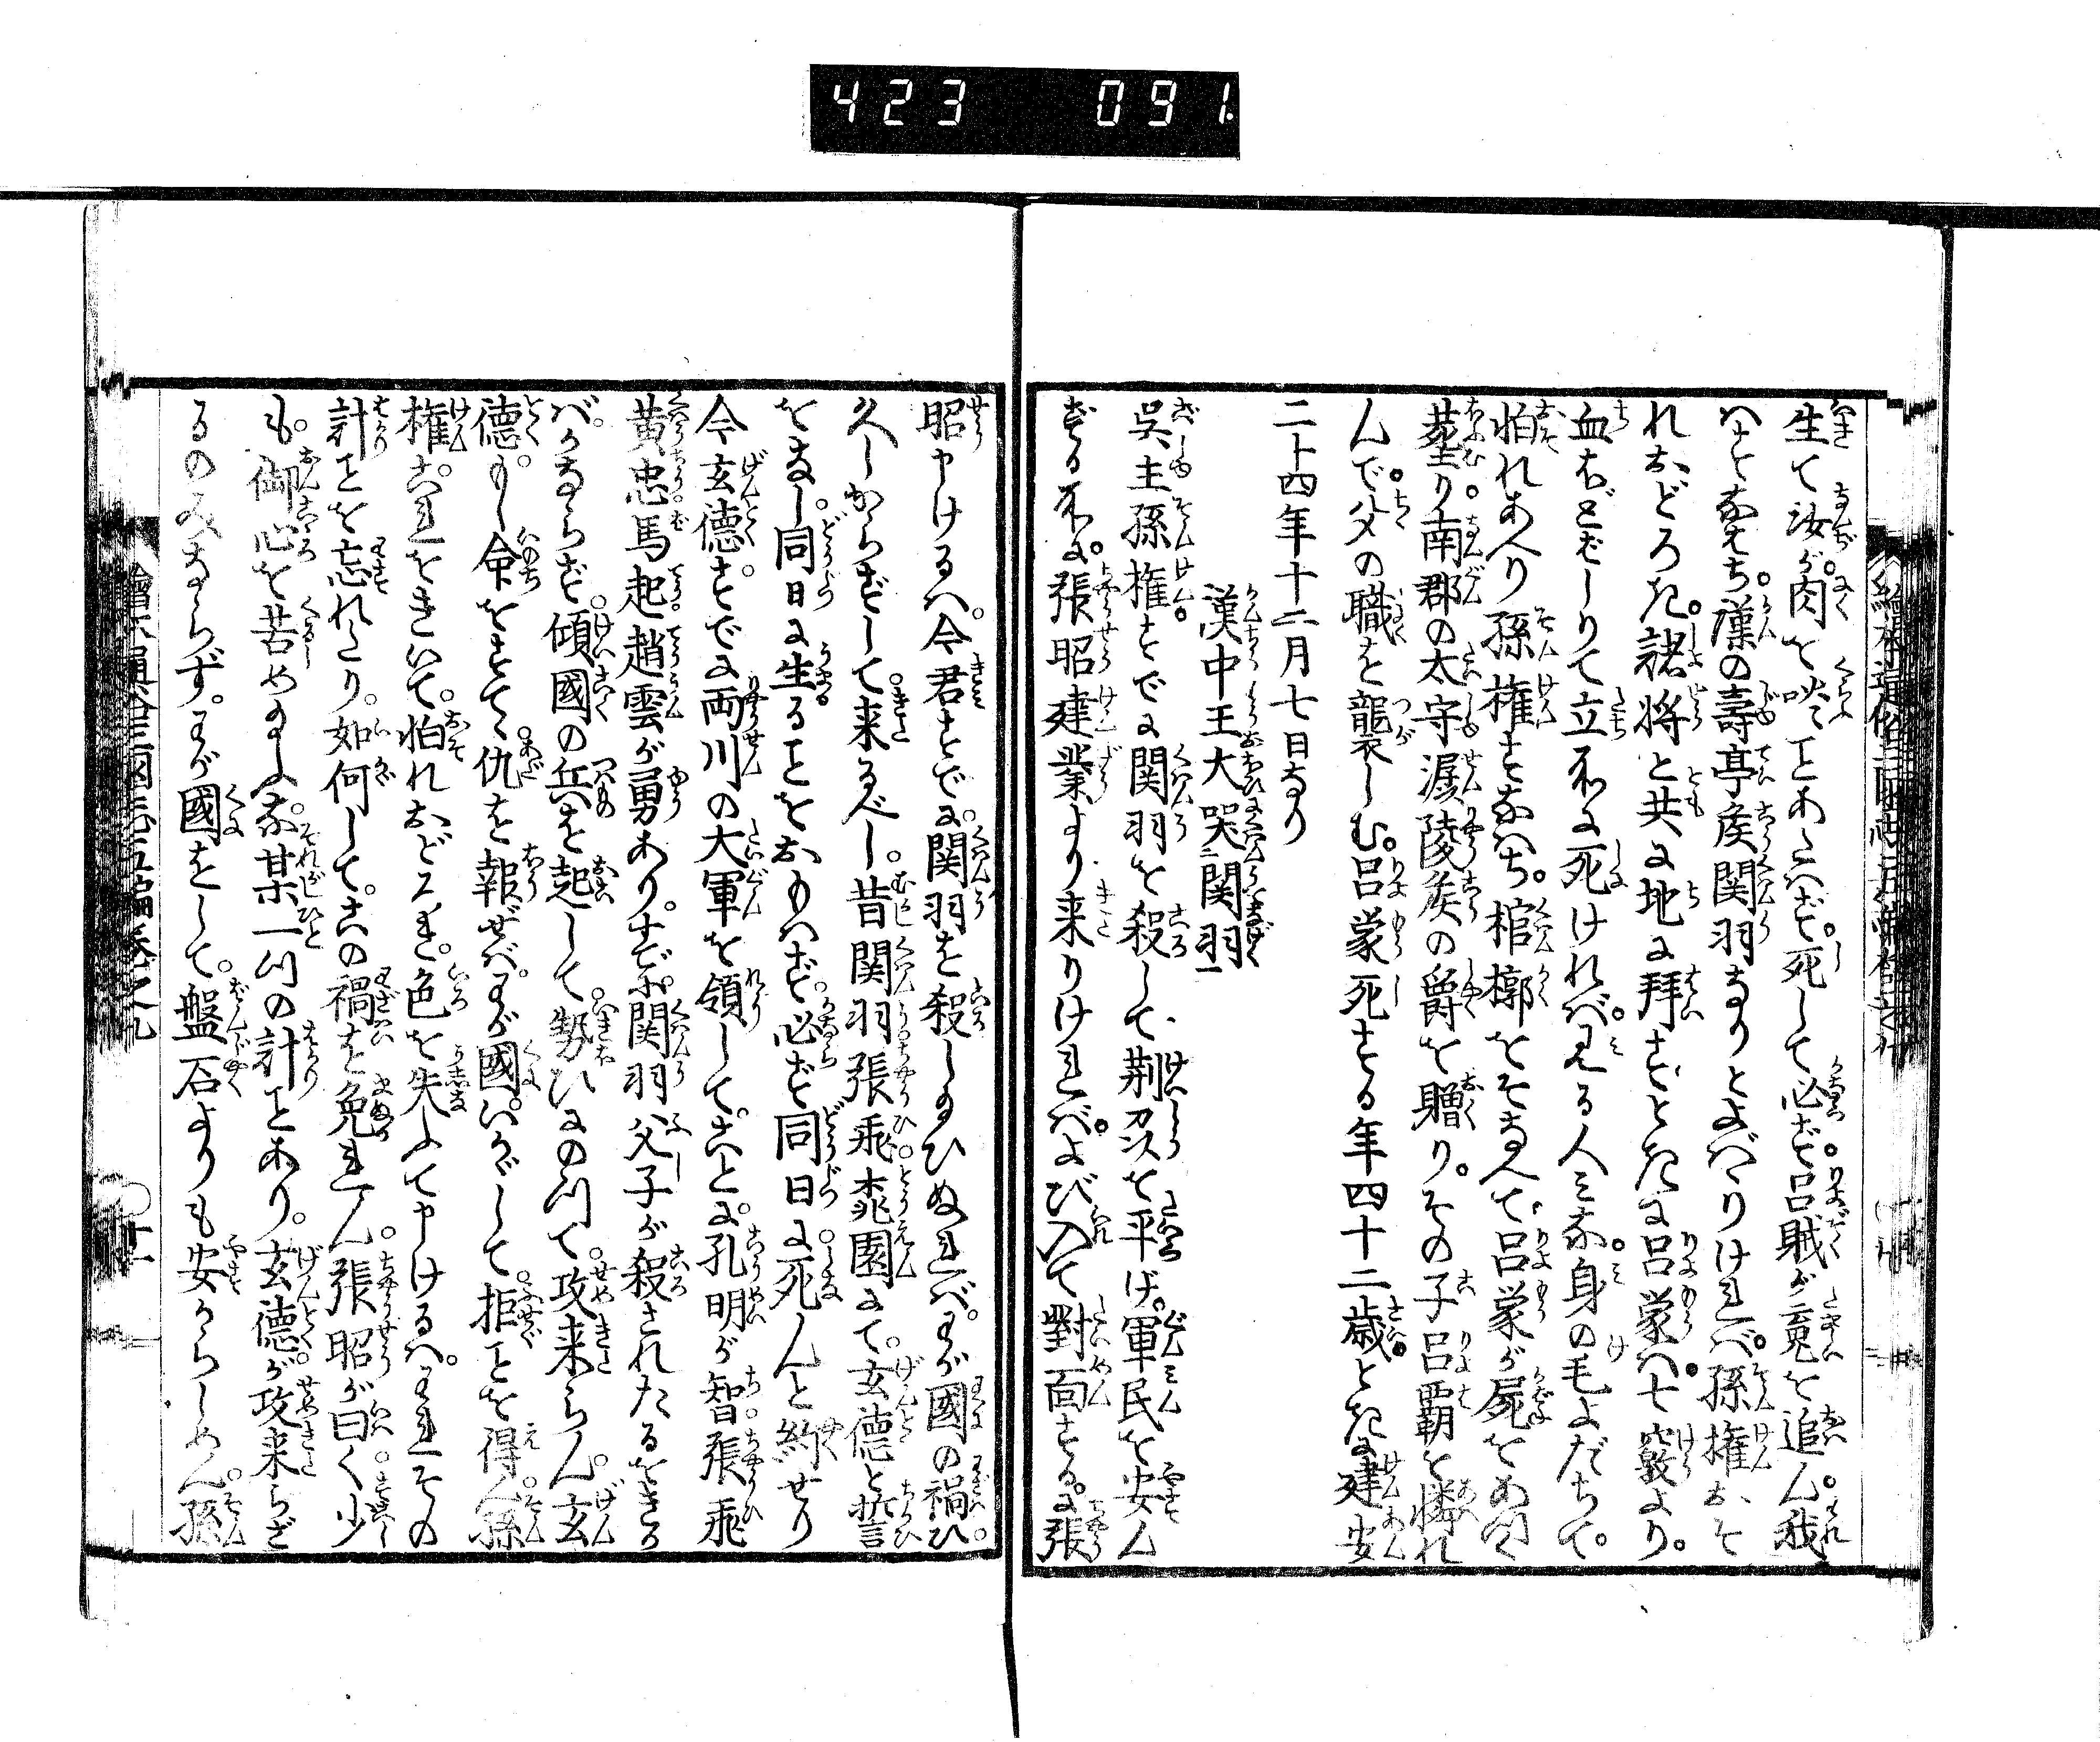 423 091.
生て汝が肉を啖ふことあたはず。死して必ず。呂賊が魂を追ん。我
はこれすなはち。漢の壽亭侯関羽なりとよばゝりければ。孫権おそ
れおどろき。諸将と共に地に拜す。ときに呂蒙ハ。七竅より。
血ほどばしりて立所に死けれバ。みる人みな。身の毛よだちて。
怕れあへり孫権すなはち。棺槨をそなへて。呂蒙が屍をあつく
葬り。南郡の太守潺陵侯の爵を贈り。その子呂覇を憐れ
んで。父の職を襲しむ。呂蒙死する年四十二歳。ときに建安
二十四年十二月七日なり
漢中王大哭二関羽一
呉主孫権。すでに関羽を殺して、荆州を平げ。軍民を安ん
ずる所に。張昭建業より来りければ。よび入て對面する。に張
昭申けるハ。今君すでに。関羽を殺し給ひぬれバ。わが國の禍ひ
久しからずして。来るべし。昔関羽張飛桃園にて。玄德と誓ひ
をなし。同日に生ることをおもハず。必ず同日に死んと約せり
今玄德。すでに両川の大軍を領して。ことに。孔明が智。張飛
黄忠馬起趙雲が勇あり。すでに関羽父子が殺されたるをきか
バ。かならず。傾國の兵を起して。勢ひにのつて。攻来らん。玄
德。もし命をすてゝ仇を報ぜバ。わが國。いかゞして。拒ことを得ん。孫
権。これをきいて。怕れおどろき。色を失ふて申けるハ。われその
計ことを忘れたり。如何して。この禍を免れん。張昭が曰く少
も。御心を苦め給ふな。某一つの計ことあり。玄德が攻来らざ
るのみならず。わが國をして。盤石よりも安からしめん。孫